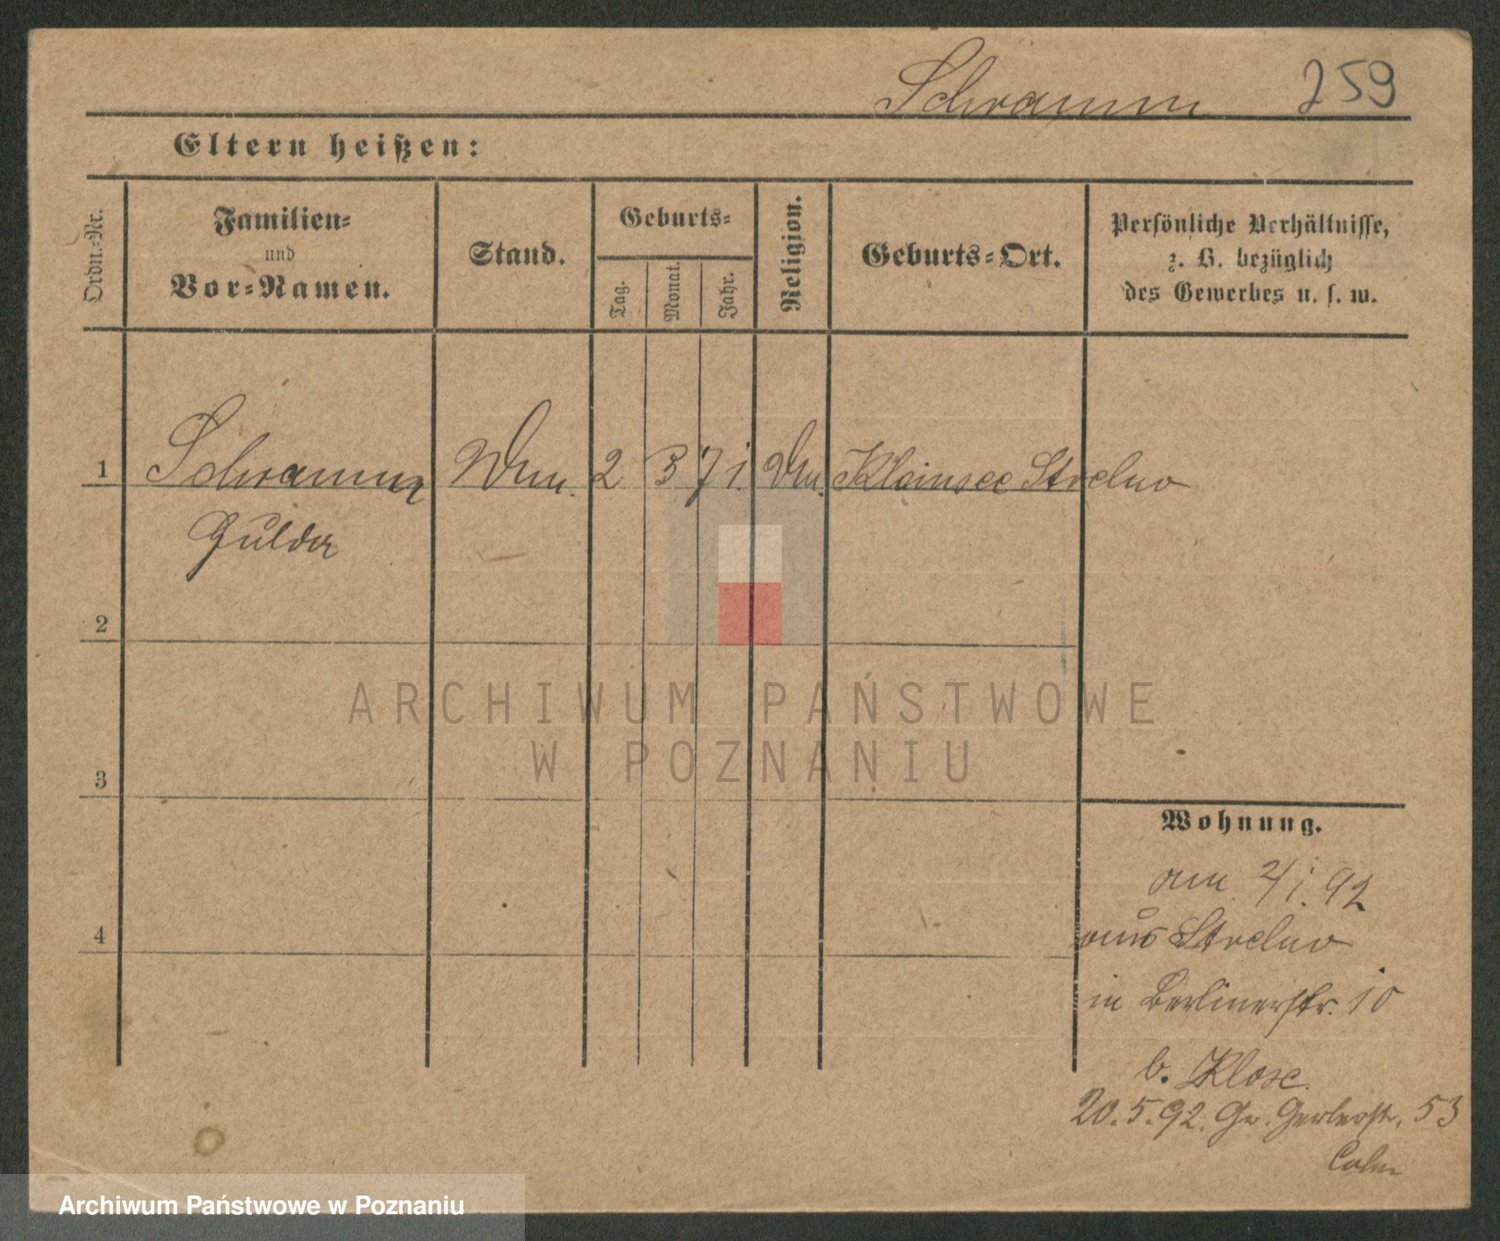 Schramm 259
Eltern heißen:
Ordn.=Nr.
Familien=
und
Vor=Namen.
Stand.
Geburts=
Tag.
Monat.
Jahr.
Religion.
Geburts=Ort.
Persönliche Verhältnisse,
z. B. bezüglich
des Gewerbes u. s. w.
1 Schramm 2 3 71. Kleinsee Strelno
Hulda
2
3
4
ARCHIWUM PAŃSTWOWE
W POZNANIU
Wohnung.
am 2/1. 92
aus Strelno
in Berlinerstr. 10
b. Klose
20.5.92. Gr. Gerberstr. 53
Archiwum Państwowe w Poznaniu